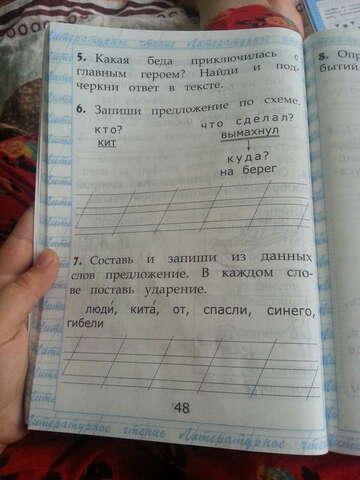 Литературное чтение Литературное
5. Какая беда приключилась с
главным героем? Найди и под-
черкни ответ в тексте.
6. Запиши предложение по схеме.
кто? что сделал?
кит вымахнул
куда?
на берег
7. Составь и запиши из данных
слов предложение. В каждом сло-
ве поставь ударение.
люди, кита, от, спасли, синего,
гибели
48
Литературное чтение Литературное
8. Опр
бытий